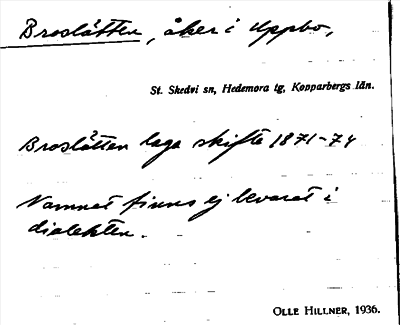 Broslåtten, åker i Uppbo,
St. Skedvi sn, Hedemora tg, Kopparbergs län.
Broslåtten laga skifte 1871-74
Namnet finns ej bevarat i
dialekten.
OLLE HILLNER, 1936.